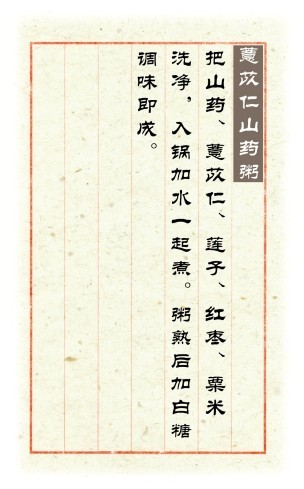 薏苡仁山药粥
把山药、薏苡仁、莲子、红枣、粟米
洗净，入锅加水一起煮。粥熟后加白糖
调味即成。